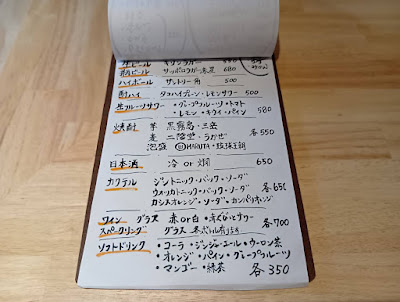 生ビール キリンラガー
瓶ビール サッポロラガー赤星 680
ハイボール サントリー角 500
酎ハイ タコハイプレーン・レモンサワー 500
生フルーツサワー ・グレープフルーツ・トマト
・レモン・キウイ・パイン 580
焼酎 芋 黒霧島・三岳
麦 二階堂・うかぜ 各550
泡盛 MARUTA・琉球王朝
日本酒 冷 or 燗 650
カクテル ジントニック・バック・ソーダ
ウォッカトニック・バック・ソーダ 各650
カシスオレンジ・ソーダ・カンパリオレンジ
ワイン グラス 赤or白・赤ぐびっとサワー
スパークリング グラス 各700
ソフトドリンク ・コーラ・ジンジャーエール・ウーロン茶
・オレンジ・パイン・グレープフルーツ
・マンゴー・緑茶 各350